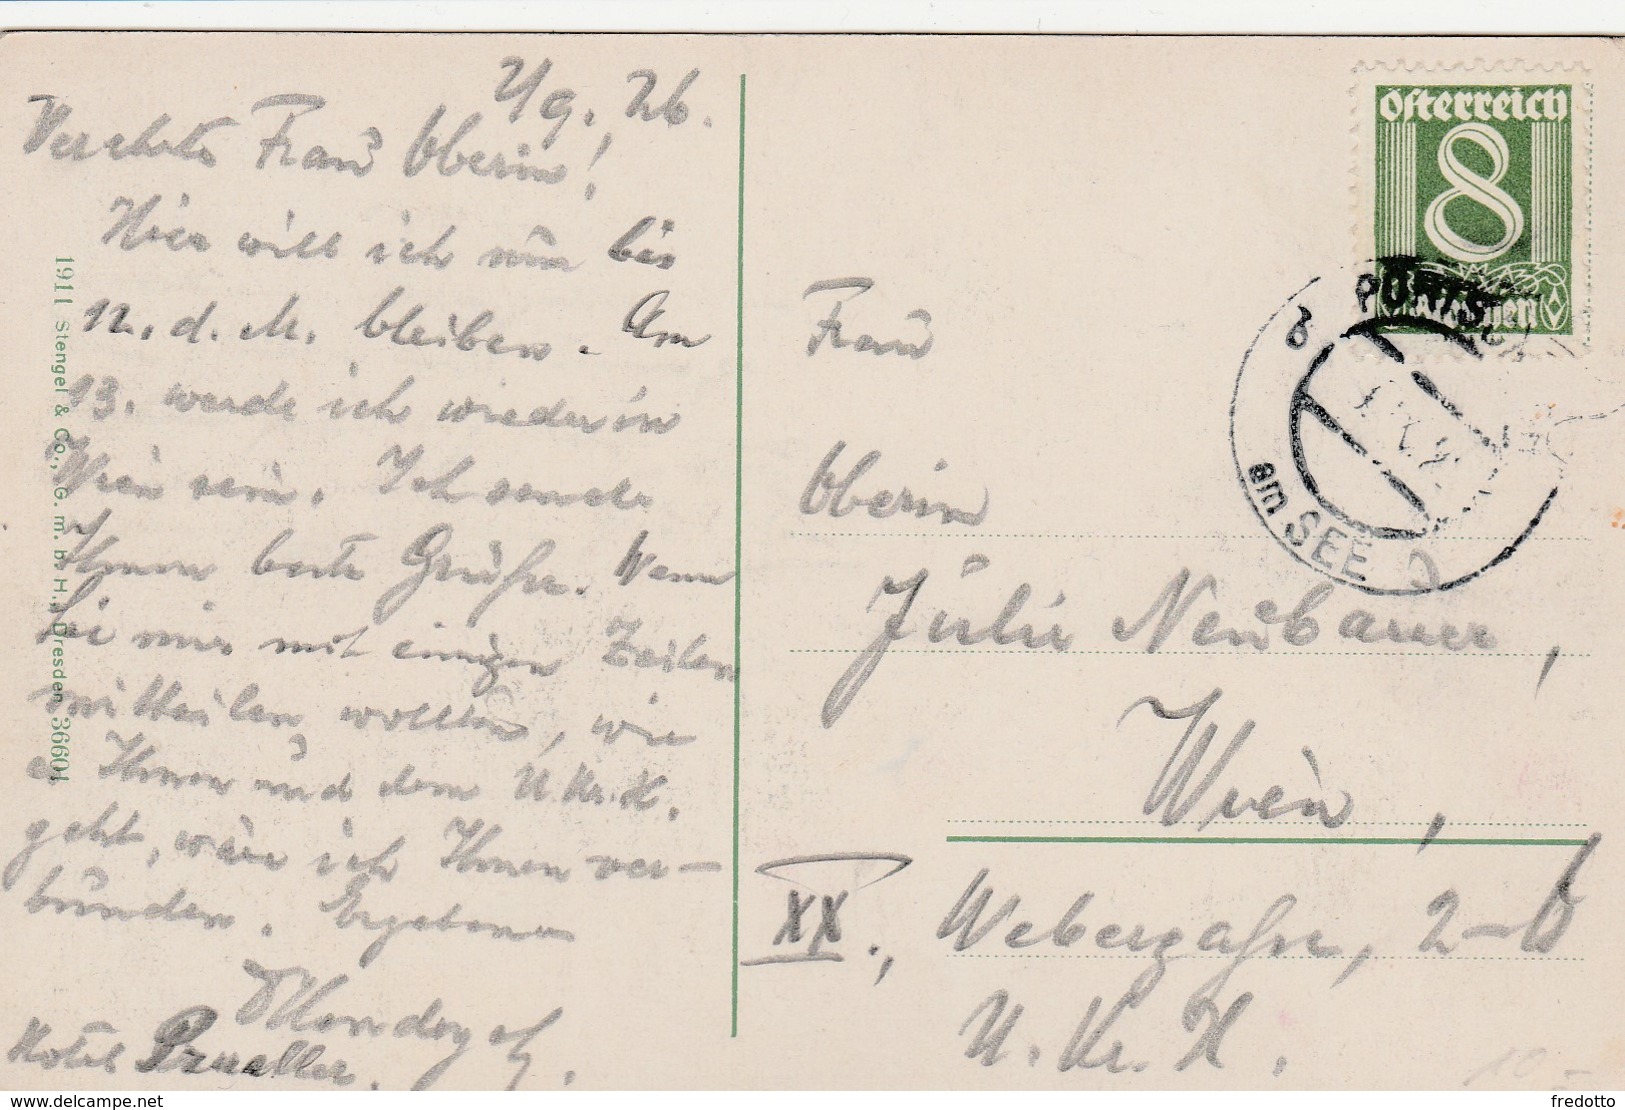 2/9. 26.
Verehrte Frau Oberin!
Hier will ich nun bis
12. d. M. bleiben. Am
13. werde ich wieder in
Wien sein. Ich sende
Ihnen beste Grüße. Wenn
Sie mir mit einigen Zeilen
mitteilen wollten, wie
es Ihnen und dem U. Kr. H.
geht, wäre ich Ihnen ver-
bunden. Ergebener
Hotel
1911 Stengel & Co., G. m. b. H., Dresden 36601
Österreich
8
Groschen
am SEE
Frau
Oberin
Julie Neubauer,
Wien,
XX., Webergasse, 2-6
U. Kr. H.
10.-
www.delcampe.net
fredotto